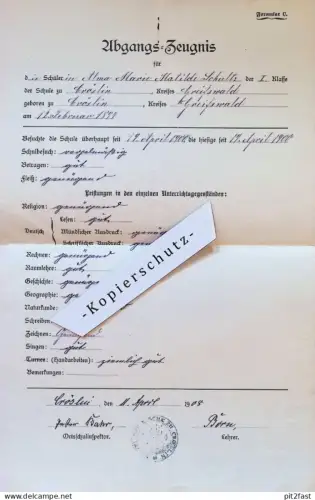 Formular C.
Abgangs-Zeugnis
für
d ie Schülerin Alma Marie Matilde Schultz der I. Klasse
der Schule zu Cröslin, Kreises Greifswald
geboren zu Cröslin, Kreises Greifswald
am 12. Februar
Besuchte die Schule überhaupt seit 19. April 1900 die hiesige seit 19. April 1900
Schulbesuch: regelmäßig
Betragen: gut
Fleiß: genügend
Leistungen in den einzelnen Unterrichtsgegenständen:
Religion: genügend
Lesen: gut
Deutsch Mündlicher Ausdruck: genüg
Schriftlicher Ausdruck: gen
Rechnen: genügend
Raumlehre: gut
Geschichte: genüg
Geographie: ge
Naturkunde:
Schreiben:
Zeichnen:
Singen: gut
Turnen: (Handarbeiten): ziemlich gut
Bemerkungen:
-Kopierschutz-
Cröslin den 11. April 1908
Ortsschulinspektor. Lehrer.
© www.pit2fast.de